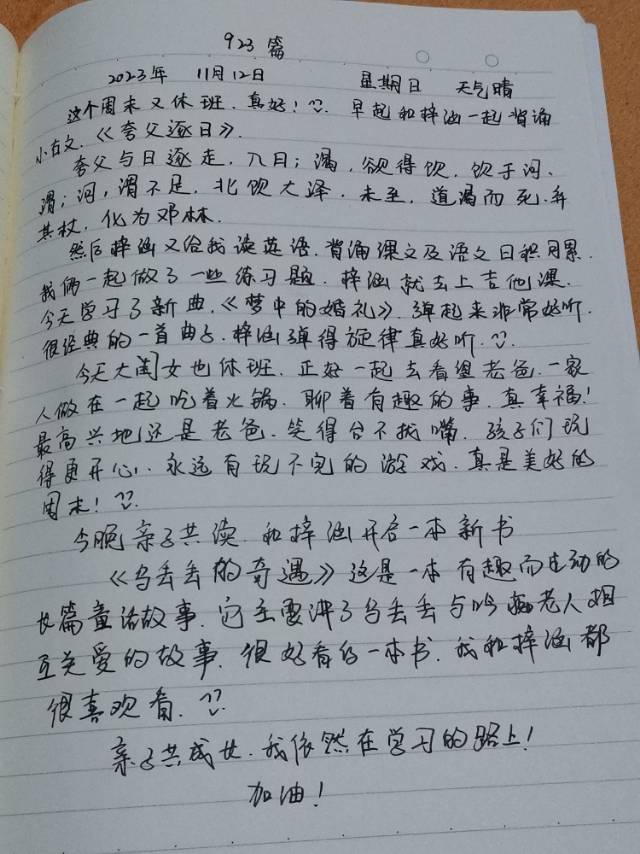 923篇
2023年 11月12日 星期日 天气晴
这个周末又休班.真好! 早起和梓涵一起背诵
小古文.《夸父逐日》.
夸父与日逐走,入日;渴,欲得饮,饮于河、
渭;河,渭不足,北饮大泽.未至,道渴而死.弃
其杖,化为邓林.
然后梓涵又给我读英语.背诵课文及语文日积月累.
我俩一起做了一些练习题.梓涵就去上吉他课.
今天学习了新曲.《梦中的婚礼》.弹起来非常好听.
很经典的一首曲子.梓涵弹得旋律真好听.
今天大闺女也休班.正好一起去看望老爸.一家
人做在一起吃着火锅.聊着有趣的事.真幸福!
最高兴地还是老爸.笑得合不拢嘴.孩子们玩
得更开心.永远有玩不完的游戏.真是美好的
周末!
今晚亲子共读.和梓涵开启一本新书
《乌丢丢的奇遇》这是一本有趣而生动的
长篇童话故事.它主要讲了乌丢丢与吟老人相
互关爱的故事.很好看的一本书.我和梓涵都
很喜欢看.
亲子共成长.我依然在学习的路上!
加油!